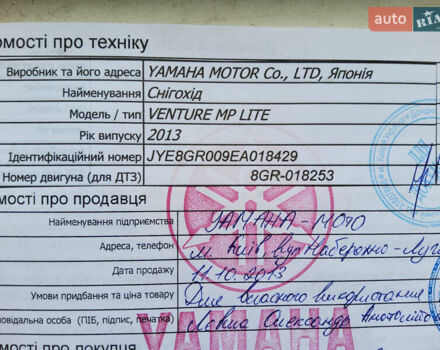 auto RIA
омості про техніку
Виробник та його адреса YAMAHA MOTOR Co., LTD, Японія
Найменування Снігохід
Модель / тип VENTURE MP LITE
Рік випуску 2013
Ідентифікаційний номер JYE8GR009EA018429
Номер двигуна (для ДТЗ) 8GR-018253
омості про продавця
Найменування підприємства YAMAHA-МОТО
Адреса, телефон м. Київ, вул Набережно-Луг
Дата продажу 11.10.2013
Умови придбання та ціна товару Для власного використання
овідальна особа (ПІБ, підпис, печатка) Олександр
YAMAHA
омості про покупця